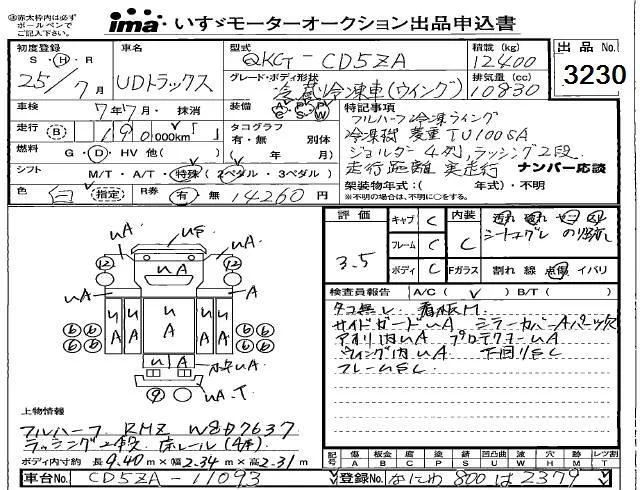 ㊟赤太枠内は必ず
ボールペンで
ご記入下さい。
ima いすゞモーターオークション出品申込書
初度登録
S・H・R
25/7月
車名
UDトラックス
型式
QKG-CD5ZA
積載 (kg)
12400
出品No.
3230
グレード・ボディ形状
冷蔵冷凍車(ウイング)
排気量 (cc)
10830
車検
7年7月・抹消
装備
AC PS PW
特記事項
フルハーフ冷凍ウィング
冷凍機 菱重TU100SA
ジョルダー4列,ラッシング2段
走行距離 実走行
ナンバー応談
走行 (B)
190,000km
タコグラフ
有・無 別体
(年 月)
燃料
G・D・HV 他( )
シフト
M/T・A/T・特殊(2ペダル・3ペダル)
架装物年式:( 年式)・不明
※不明の場合は、不明に○をする。
色
白 (指定)
R券
有・無 14260円
評価
3.5
キャブ C
フレーム C
ボディ C
内装 C
シートコゲ
Fガラス
割れ 線 点傷 イバリ
検査員報告
A/C( ✓ ) B/T( )
タコ無し 看板M
サイドガードuA ミラーカバーA
アオリ内uA プロテクターuA
ウイング内uA 下回りSC
フレームSC
uA uS uA
12 12
uA
uA A
uA uA uA uA
A A
6 6 6 6
u A uA
uA
9 uA・T
上物情報
フルハーフ RMZ W8D7637
ラッシング2段 床レール(4本)
ボディ内寸約 長9.40m×幅2.34m×高2.31m
記号
傷 A
板金 B
皮 C
塗 P
錆 S
凹凸曲 U
波 W
穴 H
外 M
レツ割 T
車台No.
CD5ZA-11093
登録No.
なにわ 800 は 2379